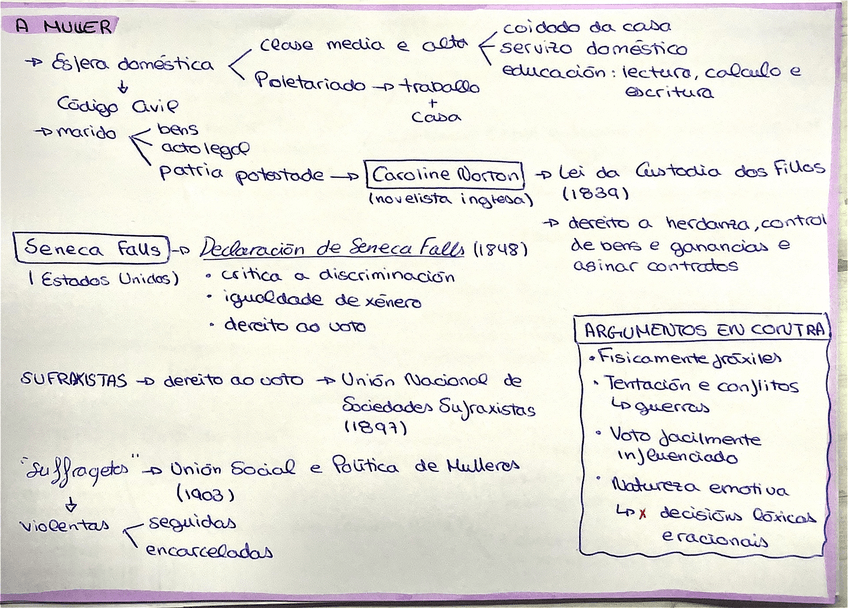 A MULLER
→ Esfera doméstica
clase media e alta
coidado da casa
servizo doméstico
educación: lectura, calculo e
escritura
Poletariado → traballo
+
casa
↓
Código Civil
→ marido
bens
acto legal
patria potestade → Caroline Norton → Lei da Custodia dos Fillos
(novelista inglesa) (1839)
→ dereito a herdanza, control
de bens e ganancias e
asinar contratos
Seneca Falls → Declaración de Seneca Falls (1848)
(Estados Unidos)
• critica a discriminación
• igualdade de xénero
• dereito ao voto
SUFRAXISTAS → dereito ao voto → Unión Nacional de
Sociedades Sufraxistas
(1897)
"Suffragetes" → Unión Social e Política de Mulleres
(1903)
↓
violentas
seguidas
encarceladas
ARGUMENTOS EN CONTRA
• Fisicamente fráxiles
• Tentación e conflitos
↳ guerras
• Voto facilmente
influenciado
• Natureza emotiva
↳ x decisións lóxicas
e racionais